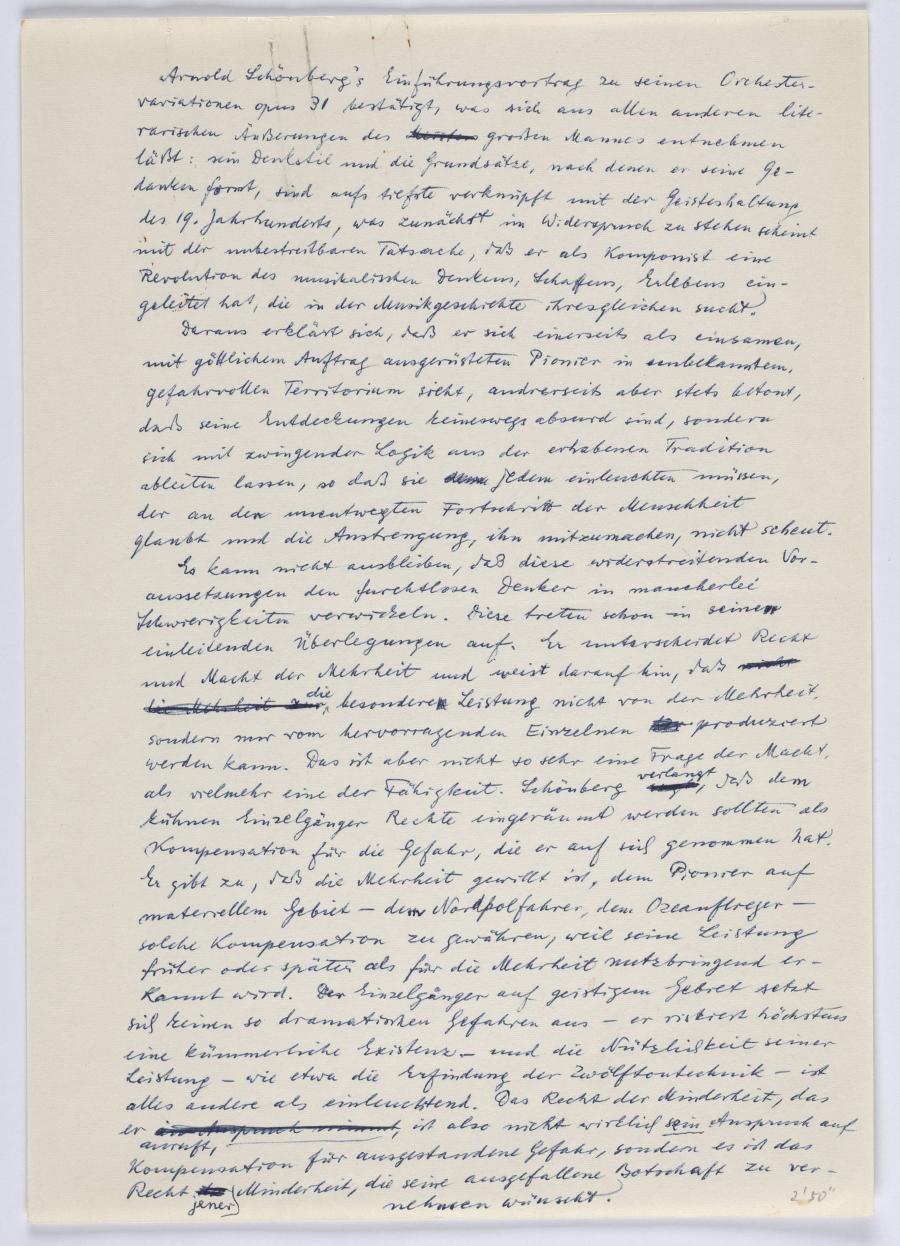 Arnold Schönberg's Einführungsvortrag zu seinen Orchester-
variationen opus 31 bestätigt, was sich aus allen anderen lite-
rarischen Äußerungen des großen Mannes entnehmen
läßt: sein Denkstil und die Grundsätze, nach denen er seine Ge-
danken formt, sind aufs tiefste verknüpft mit der Geisteshaltung
des 19. Jahrhunderts, was zunächst im Widerspruch zu stehen scheint
mit der unbestreitbaren Tatsache, daß er als Komponist eine
Revolution des musikalischen Denkens, Schaffens, Erlebens ein-
geleitet hat, die in der Musikgeschichte ihresgleichen sucht.
Daraus erklärt sich, daß er sich einerseits als einsamen,
mit göttlichem Auftrag ausgerüsteten Pionier in unbekanntem,
gefahrvollen Territorium sieht, andrerseits aber stets betont,
daß seine Entdeckungen keineswegs absurd sind, sondern
sich mit zwingender Logik aus der erhabenen Tradition
ableiten lassen, so daß sie jedem einleuchten müssen,
der an den unentwegten Fortschritt der Menschheit
glaubt und die Anstrengung, ihn mitzumachen, nicht scheut.
Es kann nicht ausbleiben, daß diese widerstreitenden Vor-
aussetzungen den furchtlosen Denker in mancherlei
Schwierigkeiten verwickeln. Diese treten schon in seinen
einleitenden Überlegungen auf. Er unterscheidet Recht
und Macht der Mehrheit und weist darauf hin, daß nicht
die Mehrheit die besondere Leistung nicht von der Mehrheit,
sondern nur vom hervorragenden Einzelnen produziert
werden kann. Das ist aber nicht so sehr eine Frage der Macht,
als vielmehr eine der Fähigkeit. Schönberg verlangt, daß dem
kühnen Einzelgänger Rechte eingeräumt werden sollten als
Kompensation für die Gefahr, die er auf sich genommen hat.
Er gibt zu, daß die Mehrheit gewillt ist, dem Pionier auf
materiellem Gebiet — dem Nordpolfahrer, dem Ozeanflieger —
solche Kompensation zu gewähren, weil seine Leistung
früher oder später als für die Mehrheit nutzbringend er-
kannt wird. Der Einzelgänger auf geistigem Gebiet setzt
sich keinen so dramatischen Gefahren aus — er riskiert höchstens
eine kümmerliche Existenz — und die Nützlichkeit seiner
Leistung — wie etwa die Erfindung der Zwölftontechnik — ist
alles andere als einleuchtend. Das Recht der Minderheit, das
er anruft, ist also nicht wirklich sein Anspruch auf
Kompensation für ausgestandene Gefahr, sondern es ist das
Recht jener Minderheit, die seine ausgefallene Botschaft zu ver-
nehmen wünscht.
2'50"